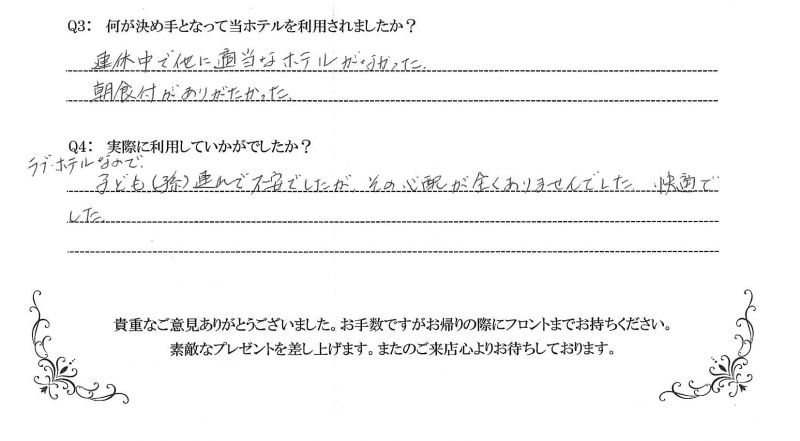 Q3: 何が決め手となって当ホテルを利用されましたか？
連休中で他に適当なホテルがなかった。
朝食付がありがたかった。
Q4: 実際に利用していかがでしたか？
ラブ・ホテルなので、
子ども(孫)連れで不安でしたが、その心配が全くありませんでした。快適で
した。
貴重なご意見ありがとうございました。お手数ですがお帰りの際にフロントまでお持ちください。
素敵なプレゼントを差し上げます。またのご来店心よりお待ちしております。